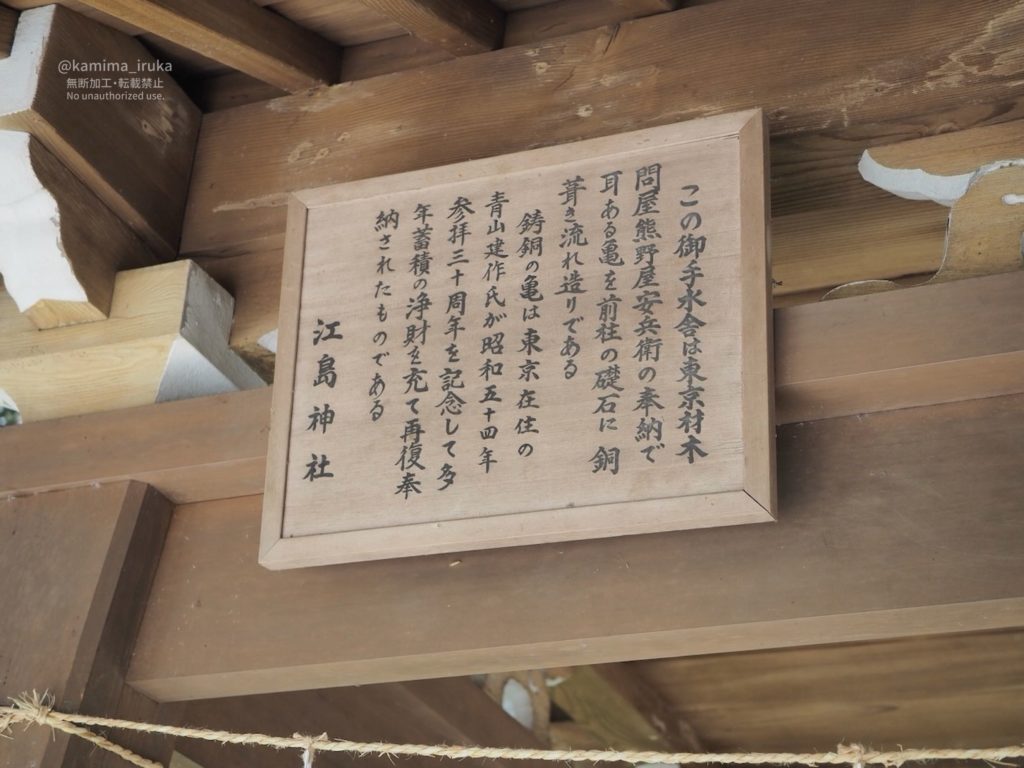 @kamima_iruka
無断加工・転載禁止
No unauthorized use.
この御手水舎は東京材木
問屋熊野屋安兵衛の奉納で
耳ある亀を前社の礎石に 銅
葺き流れ造りである
鋳銅の亀は東京在住の
青山建作氏が昭和五十四年
参拝三十周年を記念して多
年蓄積の浄財を充て再復奉
納されたものである
江島神社